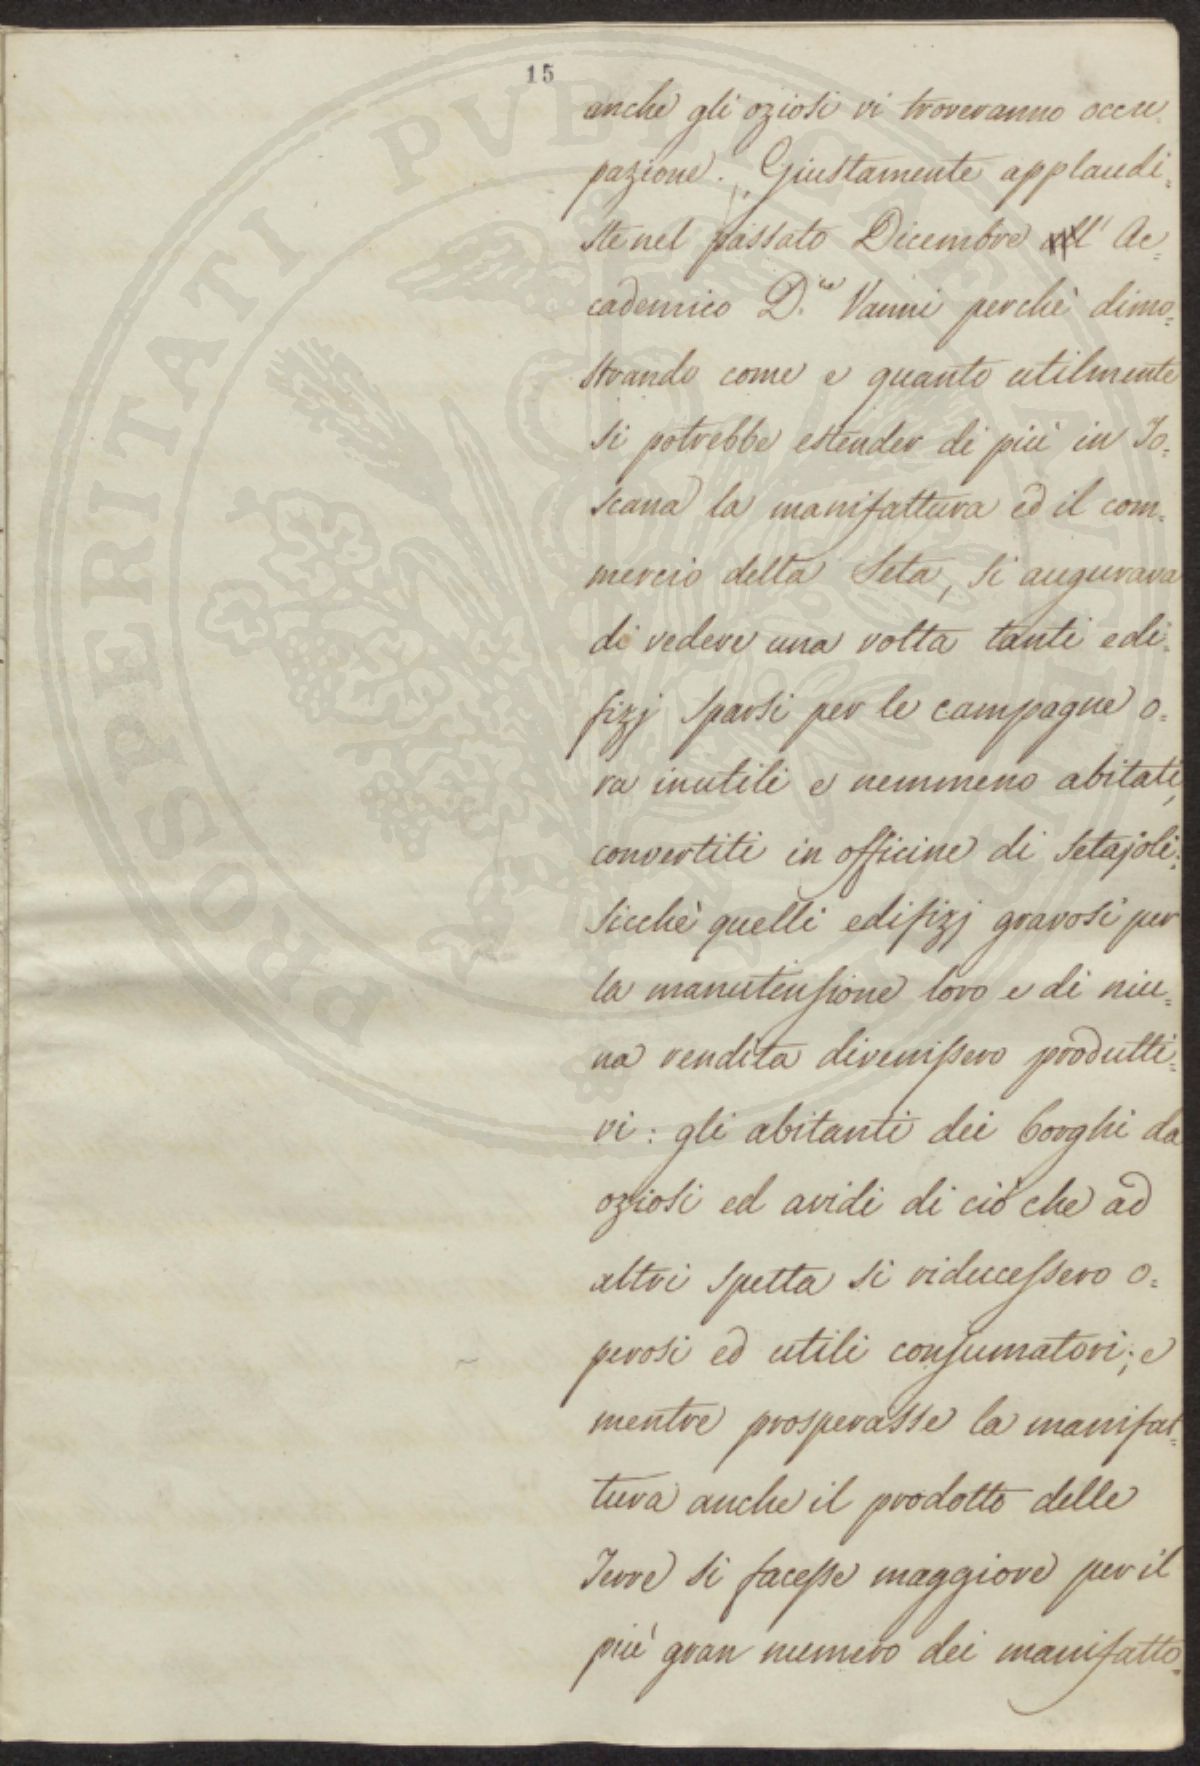 15
anche gli oziosi vi troveranno occu-
pazione. „Giustamente applaudi=
ste nel passato Dicembre all' Ac=
cademico D.re Vanni perchè dimo=
strando come e quanto utilmente
si potrebbe estender di più in To=
scana la manifattura ed il com=
mercio della Seta, si augurava
di vedere una volta tanti edi=
fizj sparsi per le campagne o=
ra inutili e nemmeno abitati,
convertiti in officine di Setajoli:
sicchè quelli edifizj gravosi per
la manutensione loro e di niu=
na rendita divenissero produtti=
vi: gli abitanti dei borghi da
oziosi ed avidi di ciò che ad
altri spetta si riducessero o=
perosi ed utili consumatori; e
mentre prosperasse la manifat=
tura anche il prodotto delle
Terre si facesse maggiore per il
più gran numero dei manifatto=
PROSPERITATI PVBLICAE AVGENDAE